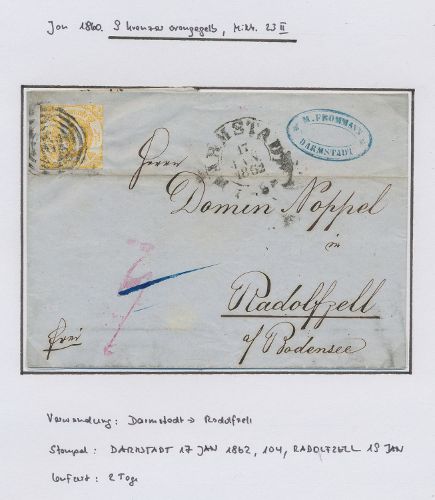 Jan 1860. 9 Kreuzer orangegelb, Mich. 23 II
M. FROMMANN
DARMSTADT
DARMSTADT
17
JAN
1862
Herrn
Domin Noppel
in
Radolfzell
a/ Bodensee
frei
Verwendung: Darmstadt → Radolfzell
Stempel: DARMSTADT 17 JAN 1862, 104, RADOLFZELL 19 JAN
Laufzeit: 2 Tage